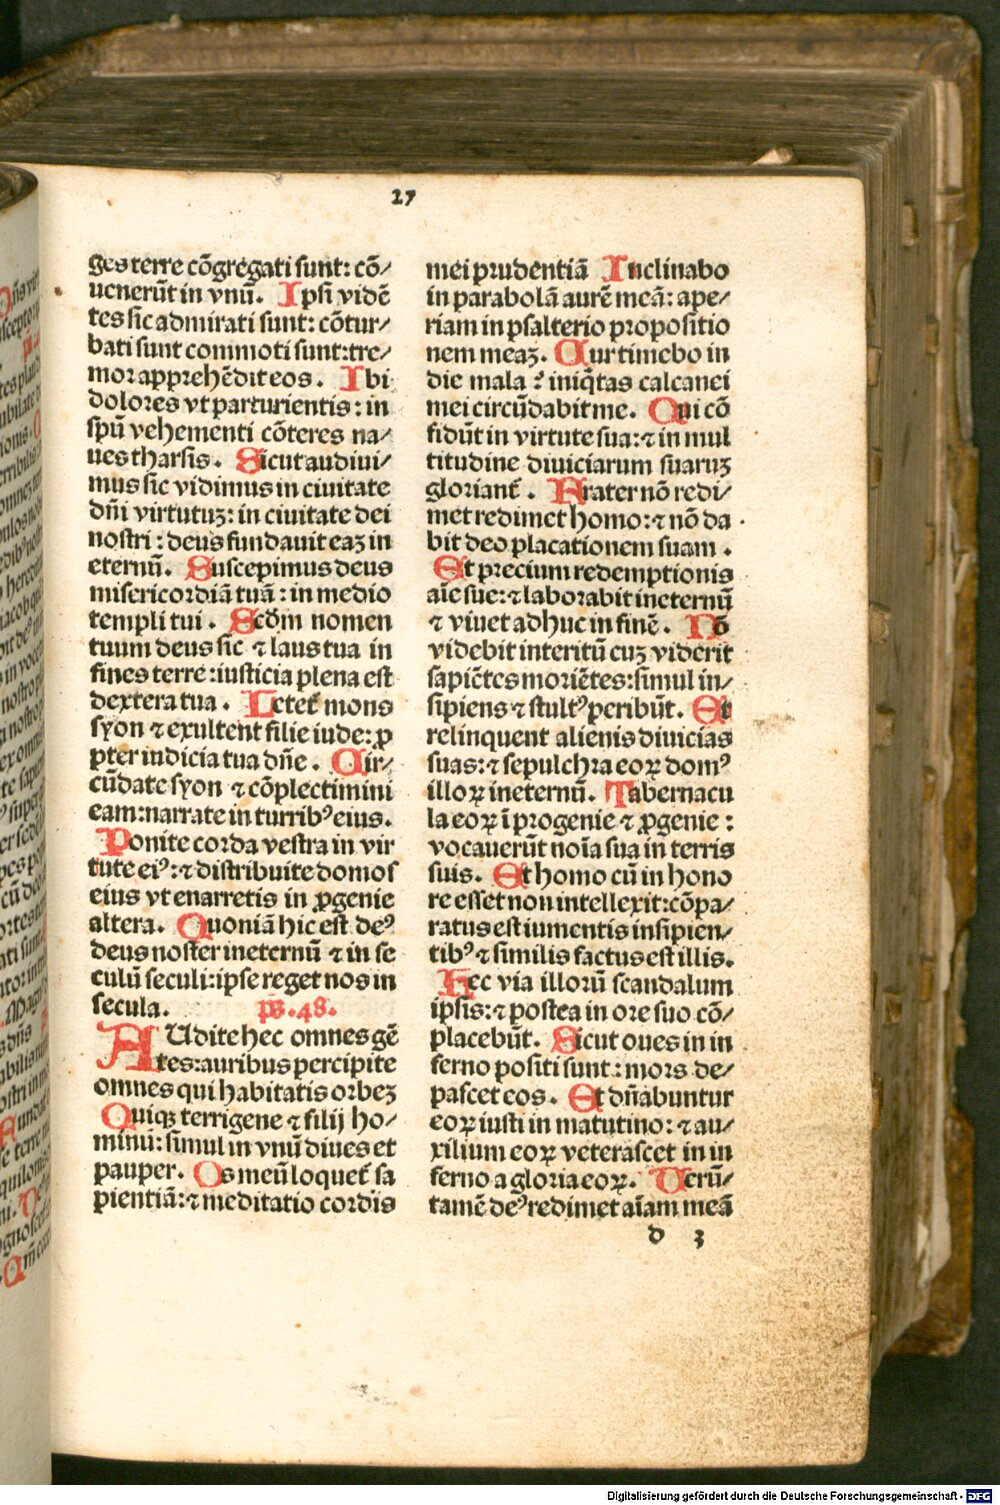 27
ges terre cõgregati sunt: cõ/
uenerũt in vnũ. Ipsi vidẽ
tes sic admirati sunt: cõtur/
bati sunt commoti sunt: tre/
mor apprehẽdit eos. Ibi
dolores vt parturientis: in
spũ vehementi cõteres na/
ues tharsis. Sicut audiui/
mus sic vidimus in ciuitate
dñi virtutuꝫ: in ciuitate dei
nostri: deus fundauit eaꝫ in
eternũ. Suscepimus deus
misericordiã tuã: in medio
templi tui. Scd̃m nomen
tuum deus sic ⁊ laus tua in
fines terre: iusticia plena est
dextera tua. Letet̃ mons
syon ⁊ exultent filie iude: ꝓ
pter iudicia tua dñe. Cir/
cũdate syon ⁊ cõplectimini
eam: narrate in turribꝰ eius.
Ponite corda vestra in vir
tute eiꝰ: ⁊ distribuite domos
eius vt enarretis in ꝓgenie
altera. Quoniã hic est deꝰ
deus noster ineternũ ⁊ in se
culũ seculi: ipse reget nos in
secula. ps̃. 48.
AUdite hec omnes gẽ
tes: auribus percipite
omnes qui habitatis orbeꝫ
Quiqꝫ terrigene ⁊ filij ho/
minũ: simul in vnũ diues et
pauper. Os meũ loquet̃ sa
pientiã: ⁊ meditatio cordis
mei prudentiã Inclinabo
in parabolã aurẽ meã: ape/
riam in psalterio propositio
nem meaꝫ. Cur timebo in
die mala? iniq̃tas calcanei
mei circũdabit me. Qui cõ
fidũt in virtute sua: ⁊ in mul
titudine diuiciarum suaruꝫ
gloriant̃. Frater nõ redi/
met redimet homo: ⁊ nõ da
bit deo placationem suam.
Et precium redemptionis
aĩe sue: ⁊ laborabit ineternũ
⁊ viuet adhuc in finẽ. Nõ
videbit interitũ cuꝫ viderit
sapiẽtes moriẽtes: simul in/
sipiens ⁊ stultꝰ peribũt. Et
relinquent alienis diuicias
suas: ⁊ sepulchra eoꝝ domꝰ
illoꝝ ineternũ. Tabernacu
la eoꝝ ĩ progenie ⁊ ꝓgenie:
vocauerũt noĩa sua in terris
suis. Et homo cũ in hono
re esset non intellexit: cõpa/
ratus est iumentis insipien/
tibꝰ ⁊ similis factus est illis.
Hec via illorũ scandalum
ipsis: ⁊ postea in ore suo cõ/
placebũt. Sicut oues in in
ferno positi sunt: mors de/
pascet eos. Et dñabuntur
eoꝝ iusti in matutino: ⁊ au/
xilium eoꝝ veterascet in in
ferno a gloria eoꝝ. Uerũ/
tamẽ deꝰ redimet aĩam meã
d 3
Digitalisierung gefördert durch die Deutsche Forschungsgemeinschaft - DFG